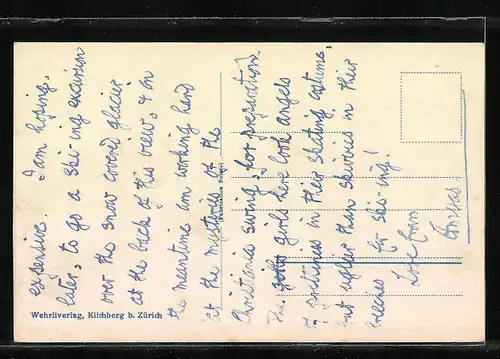 expensive. I am hoping,
later, to go a ski-ing excursion
over the snow covered glacier
at the back of this view, & in
the meantime am working hard
at the mysteries of the
Christiania swing, for preparation!
The girls here look angels
of prettiness in their skating costumes,
but uglier than skivvies in their
breeches for ski-ing!
Love from
Wehrliverlag, Kilchberg b. Zürich